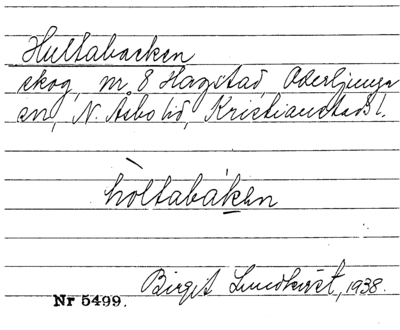 Hultabacken
skog, nr 8 Hagstad, Oderljunga
sn, N. Åsbo hd, Kristianstads l.
hòltabáken
Birgit Lindkvist, 1938.
Nr 5499.